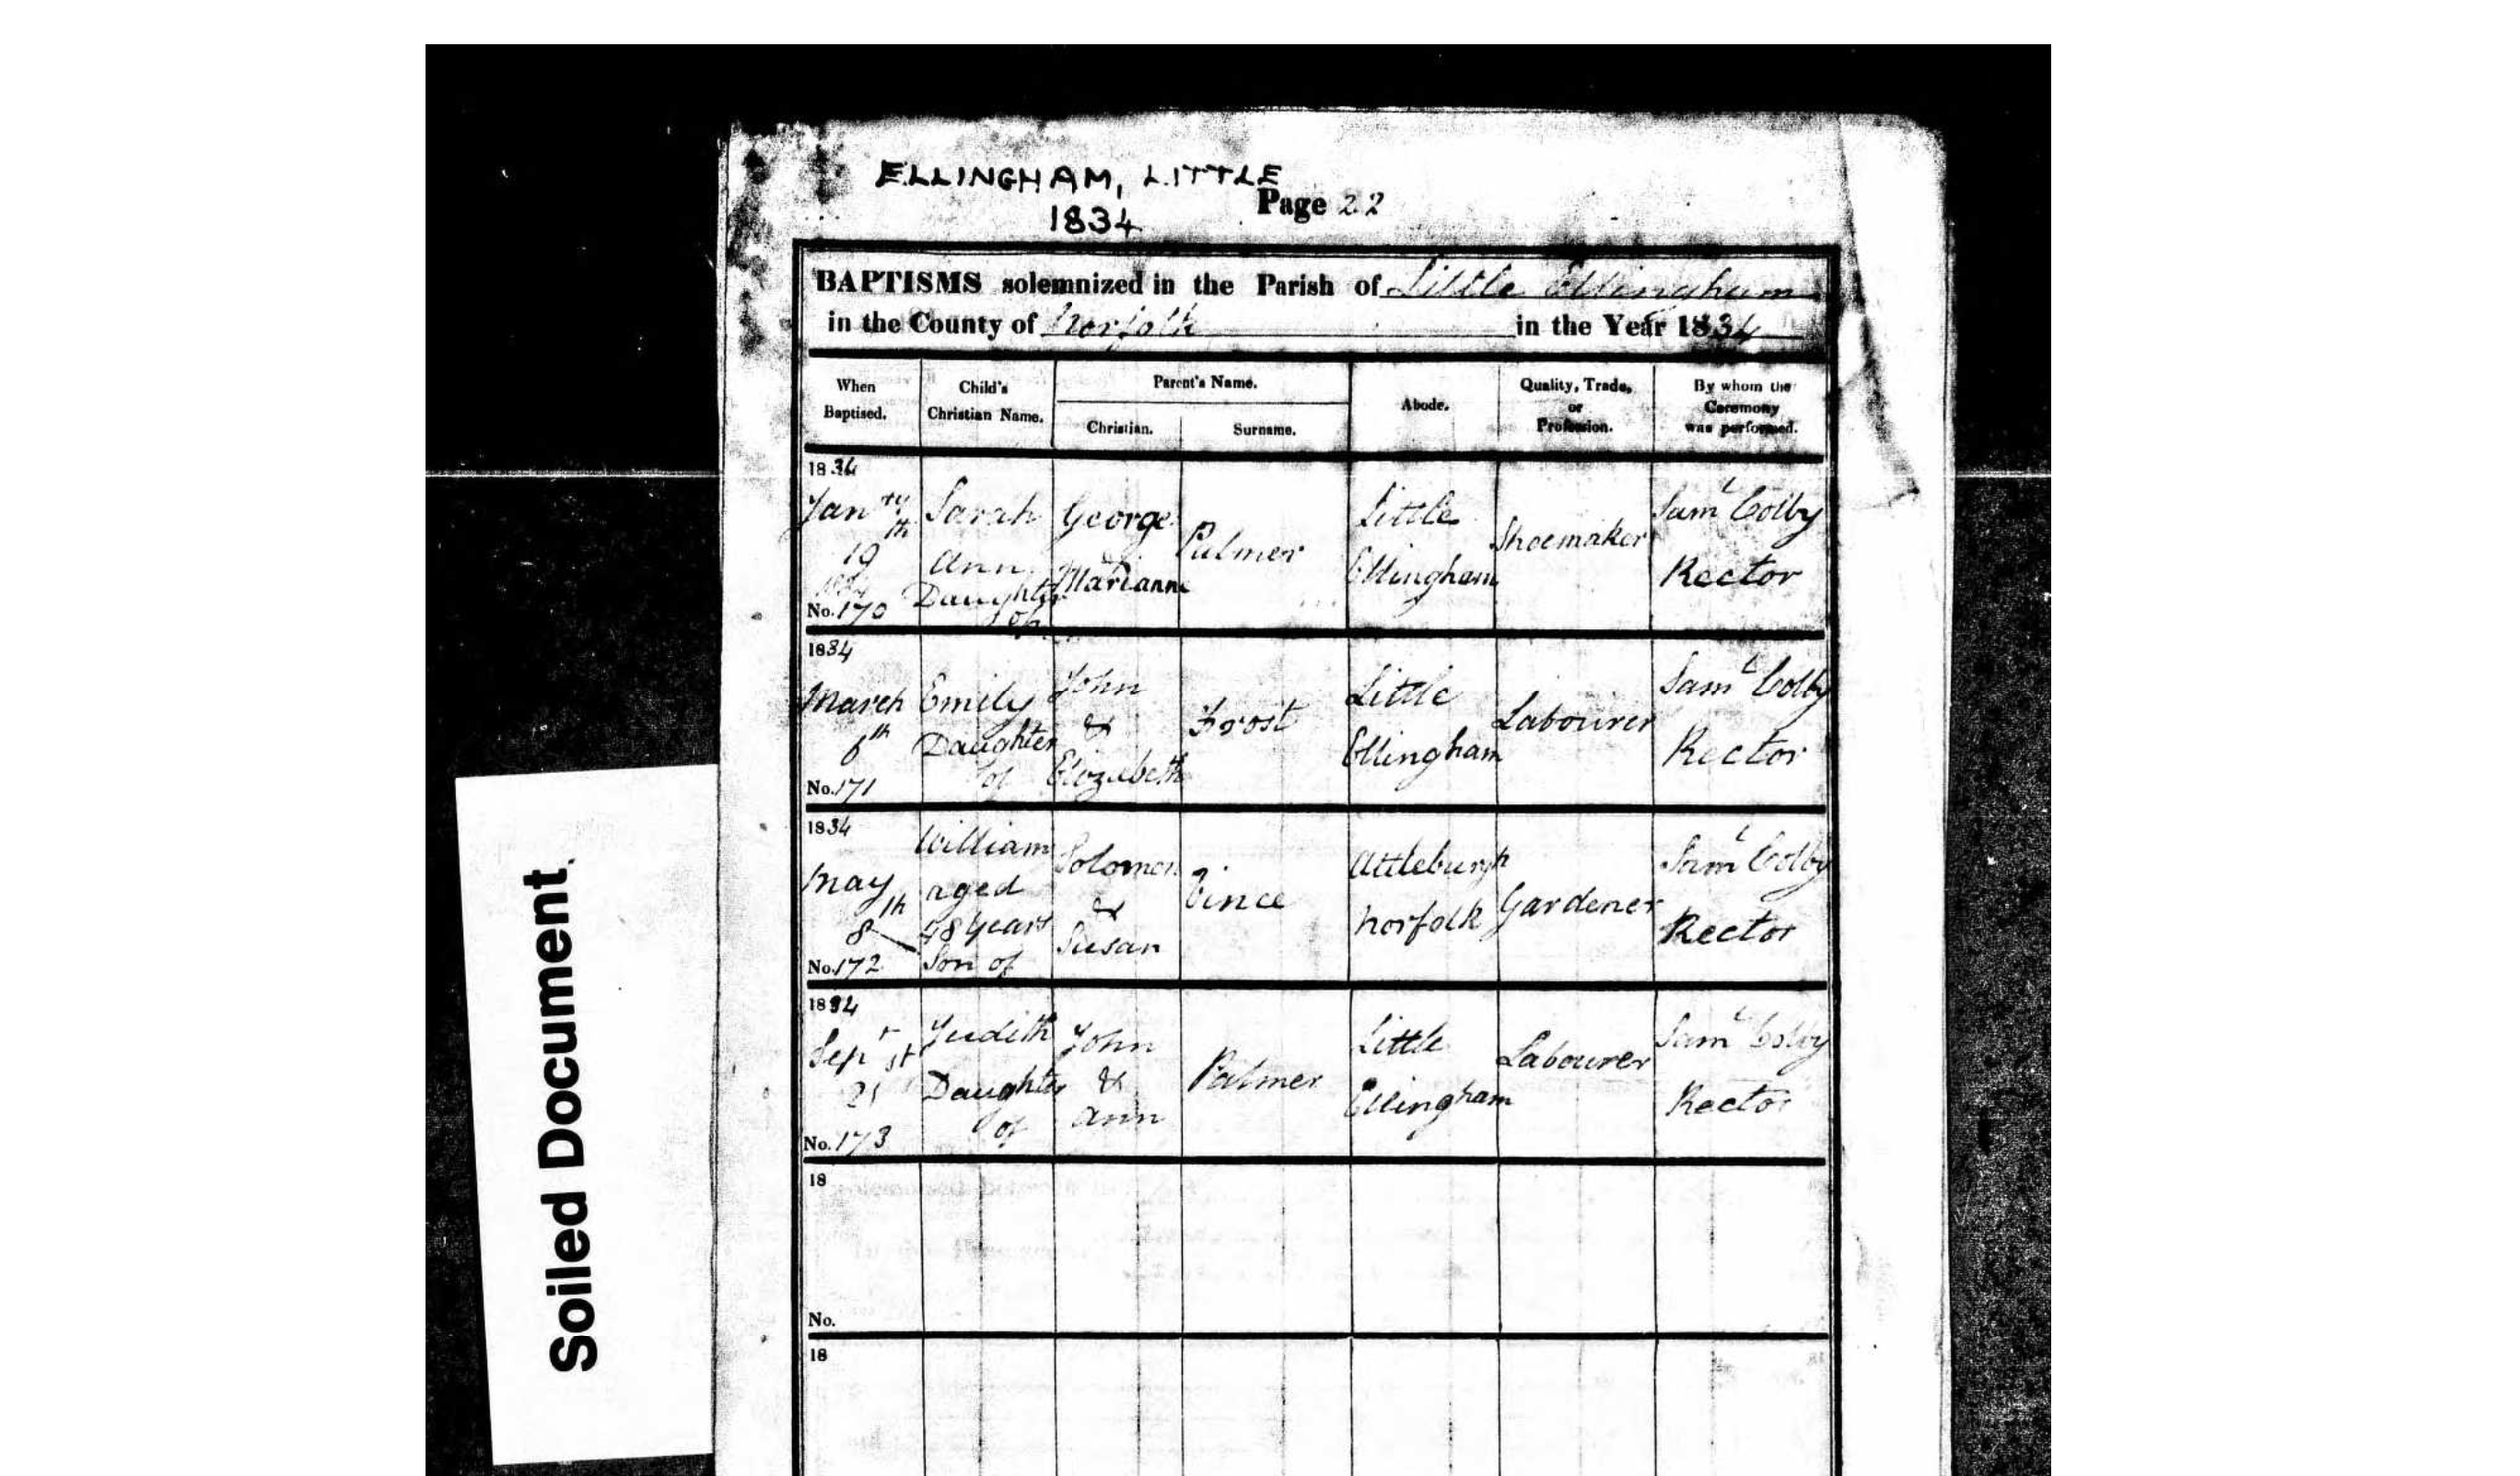 ELLINGHAM, LITTLE
1834
Page 22
BAPTISMS solemnized in the Parish of Little Ellingham
in the County of Norfolk in the Year 1834
When Baptised.
Child's Christian Name.
Parent's Name.
Christian.
Surname.
Abode.
Quality, Trade, or Profession.
By whom the Ceremony was performed.
1834
Janry
19th
1834
No. 170
Sarah
Ann
Daughter
of
George
&
Marianne
Palmer
Little
Ellingham
Shoemaker
Saml Colby
Rector
1834
March
6th
No. 171
Emily
Daughter
of
John
&
Elizabeth
Frost
Little
Ellingham
Labourer
Saml Colby
Rector
1834
May
8th
No. 172
William
aged
48 years
Son of
Solomon
&
Susan
Vince
Attleburgh
Norfolk
Gardener
Saml Colby
Rector
1834
Sepr
21st
No. 173
Judith
Daughter
of
John
&
Ann
Palmer
Little
Ellingham
Labourer
Saml Colby
Rector
18
No.
18
Soiled Document